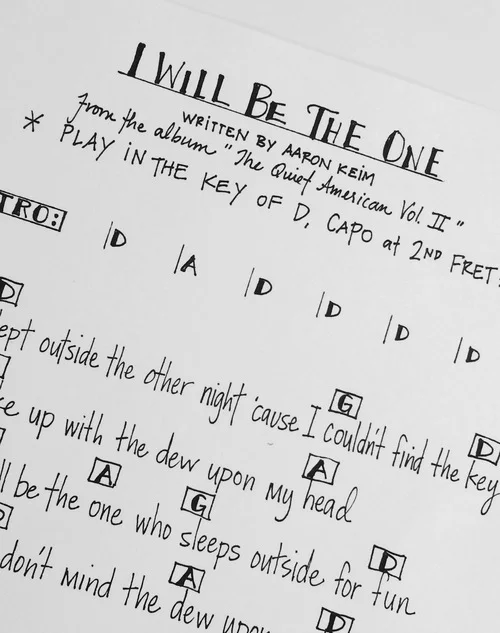 I WILL BE THE ONE
WRITTEN BY AARON KEIM
from the album "The Quiet American Vol. II"
* PLAY IN THE KEY OF D, CAPO at 2ND FRET
TRO:
|D |A |D |D |D |D
D G D
ept outside the other night 'cause I couldn't find the key
A
e up with the dew upon my head
A G D
ll be the one who sleeps outside for fun
A D
don't mind the dew upon